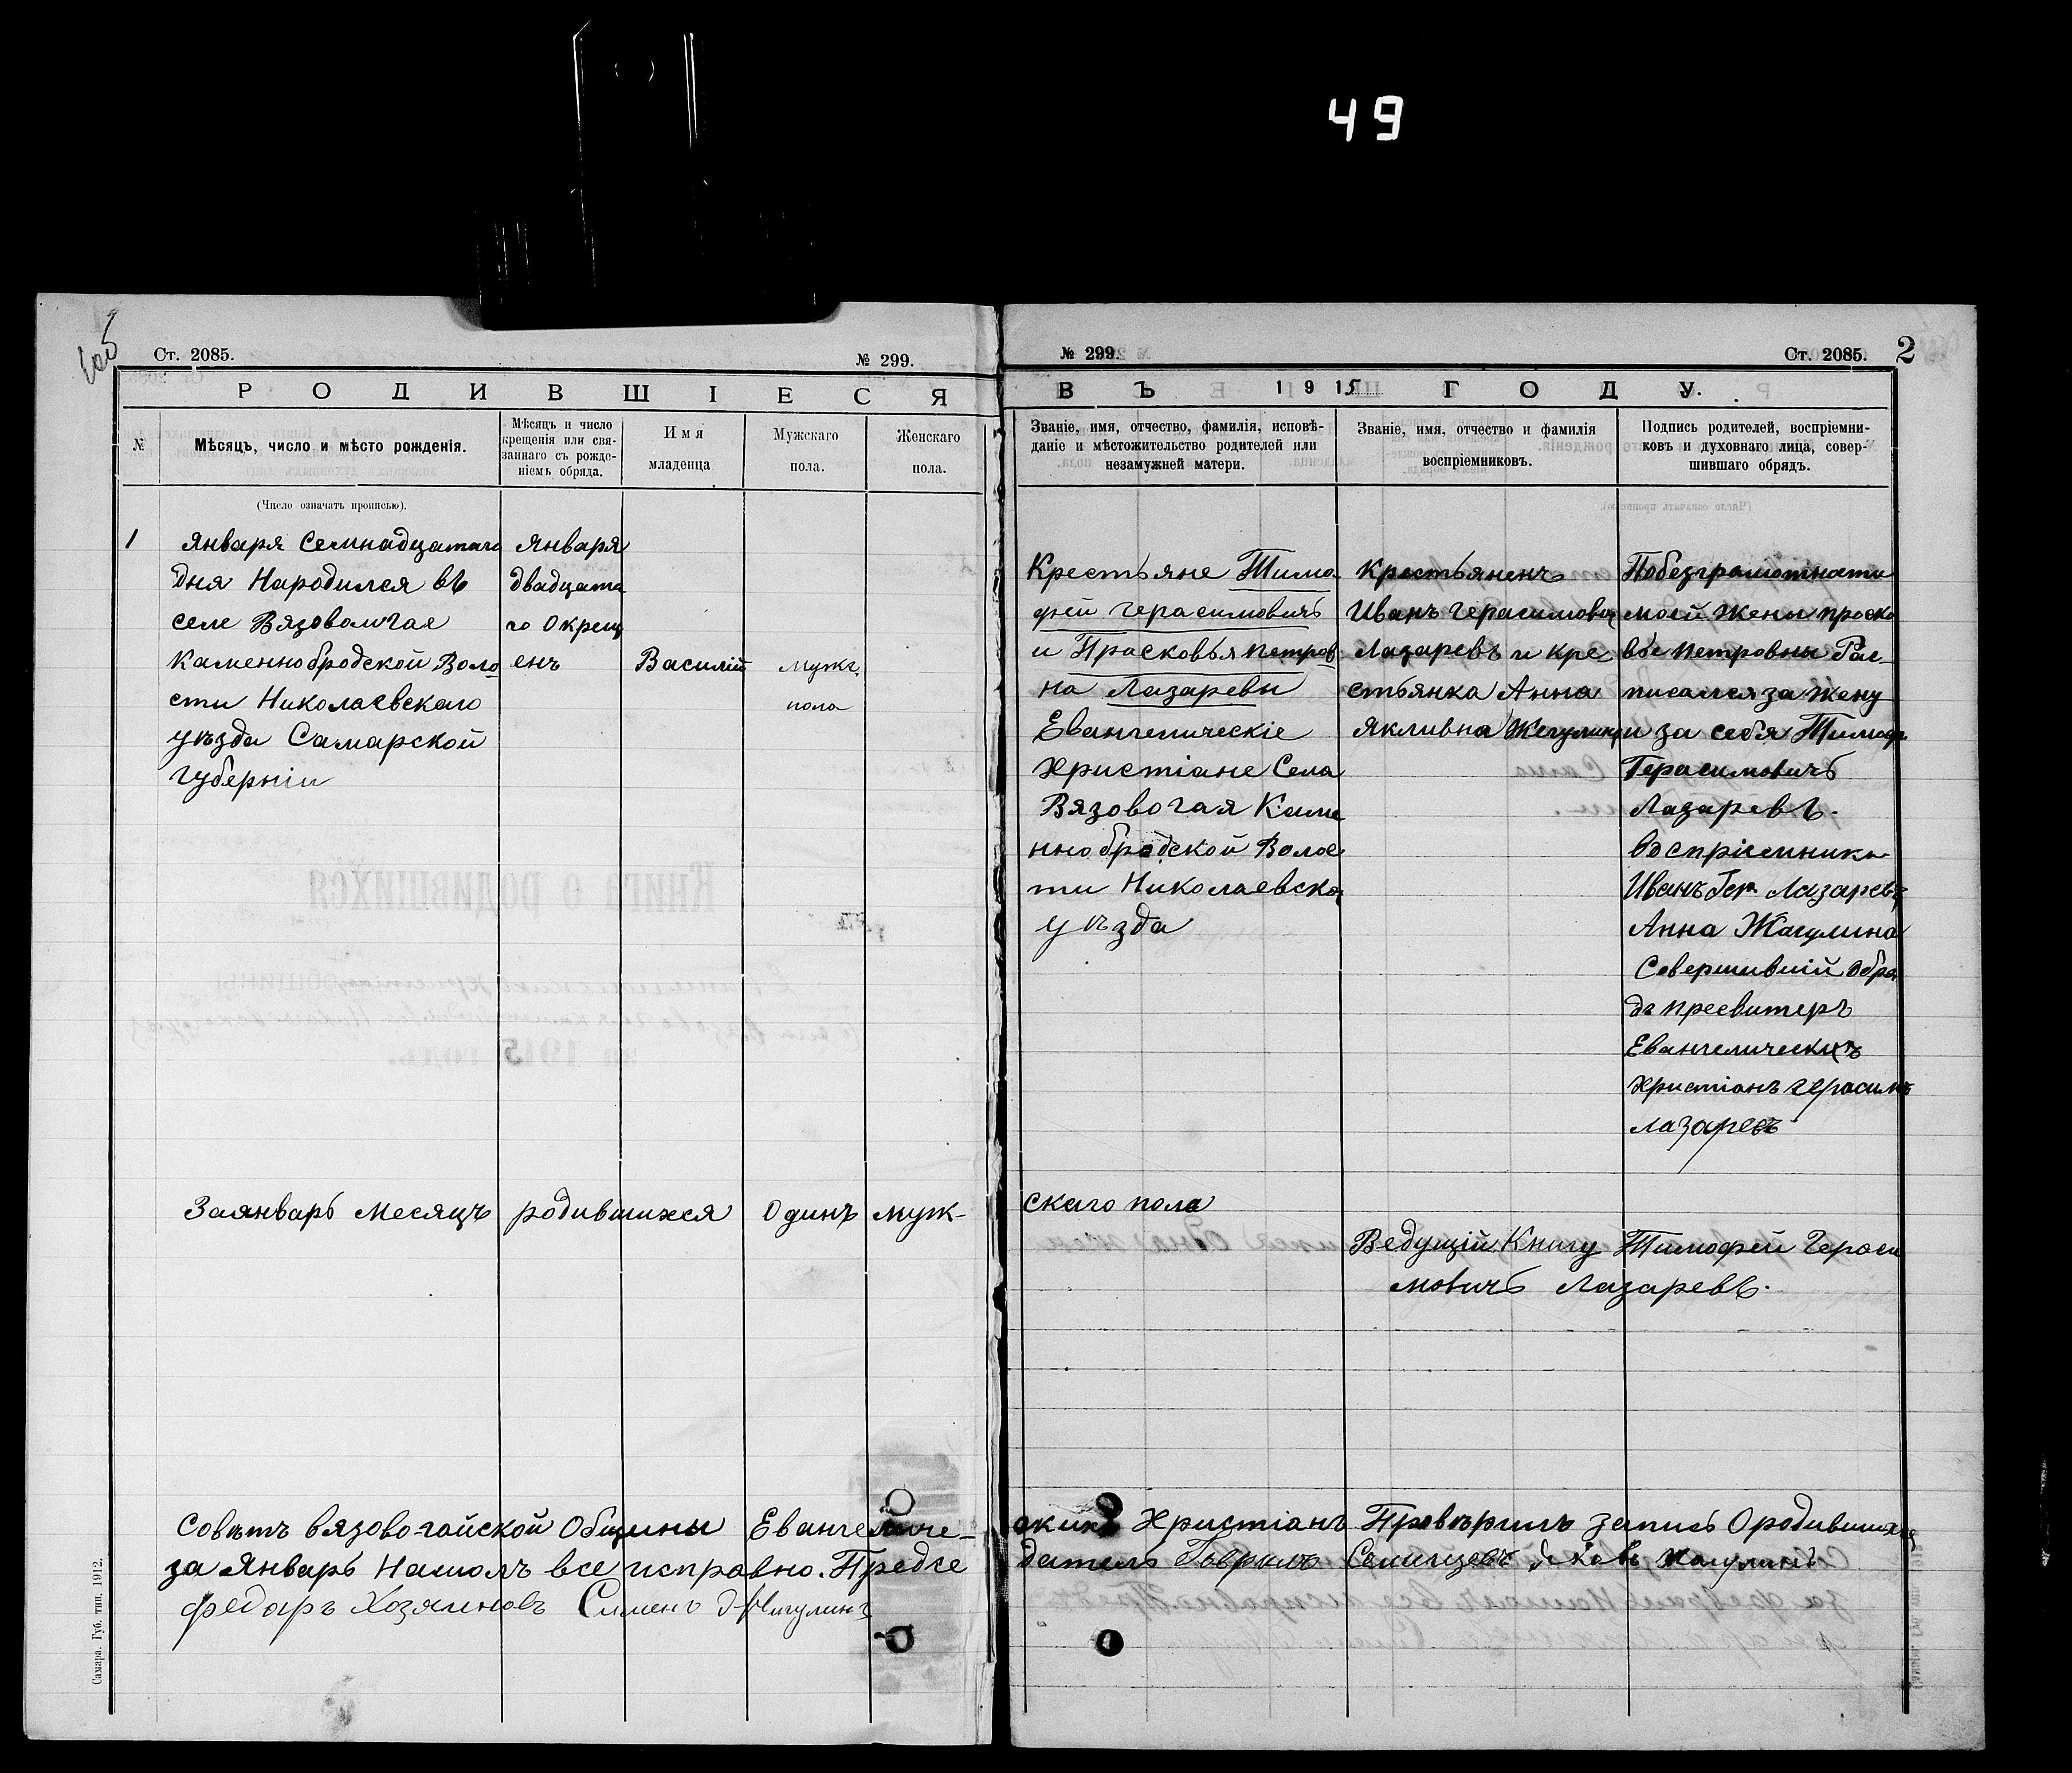 49
Ст. 2085.
№ 299.
РОДИВШІЕСЯ
№
Мѣсяцъ, число и мѣсто рожденія.
Мѣсяцъ и число
крещенія или свя-
заннаго съ рожде-
ніемъ обряда.
Имя
младенца
Мужскаго
пола.
Женскаго
пола.
(Число означать прописью).
1
Января Семнадцатаго
дня Народился въ
селе Вязовомгае
Каменнобродской Воло
сти Николаевскаго
уѣзда Самарской
Губерніи
Января
двадцата
го Окрещ
енъ
Василій
мужс.
пола
За январь месяцъ родившихся Одинъ муж-
Советъ вязово-гайской Общины Евангеличе-
за Январь Нашолъ все исправно. Предсе
федаръ Хозяиновъ Сименъ
Самара. Губ. тип. 1912.
№ 299.
Ст. 2085.
2
ВЪ 1915 ГОДУ.
Званіе, имя, отчество, фамилія, исповѣ-
даніе и мѣстожительство родителей или
незамужней матери.
Званіе, имя, отчество и фамилія
воспріемниковъ.
Подпись родителей, воспріемни-
ковъ и духовнаго лица, совер-
шившаго обрядъ.
Крестьяне Тимо
фей Герасимовичъ
и Прасковья Петров
на Лазаревы
Евангелическіе
Христіане Села
Вязовогая Каме
ннобродской Волос
ти Николаевска
уѣзда
Крестьяненъ
Иванъ Герасимовоч
Лазаревъ и кре
стьянка Анна
Якливна Жегулина
Побезграмотнати
моей Жены проско
вье Петровны Рас-
писался за Жену
и за себя Тимоф.
Герасимовичъ
Лазаревъ.
воспріемники
Иванъ Гер. Лазаревъ
Анна Жагулина
Совершивший Обра
дъ пресвитеръ
Евангелическихъ
христіанъ герасимъ
лазаревъ
скаго пола
Ведущій Книгу Тимофей Гераси
мовичъ Лазаревъ.
скихъ Христіанъ Провѣрилъ запись О родившихся
датель Гаврилъ